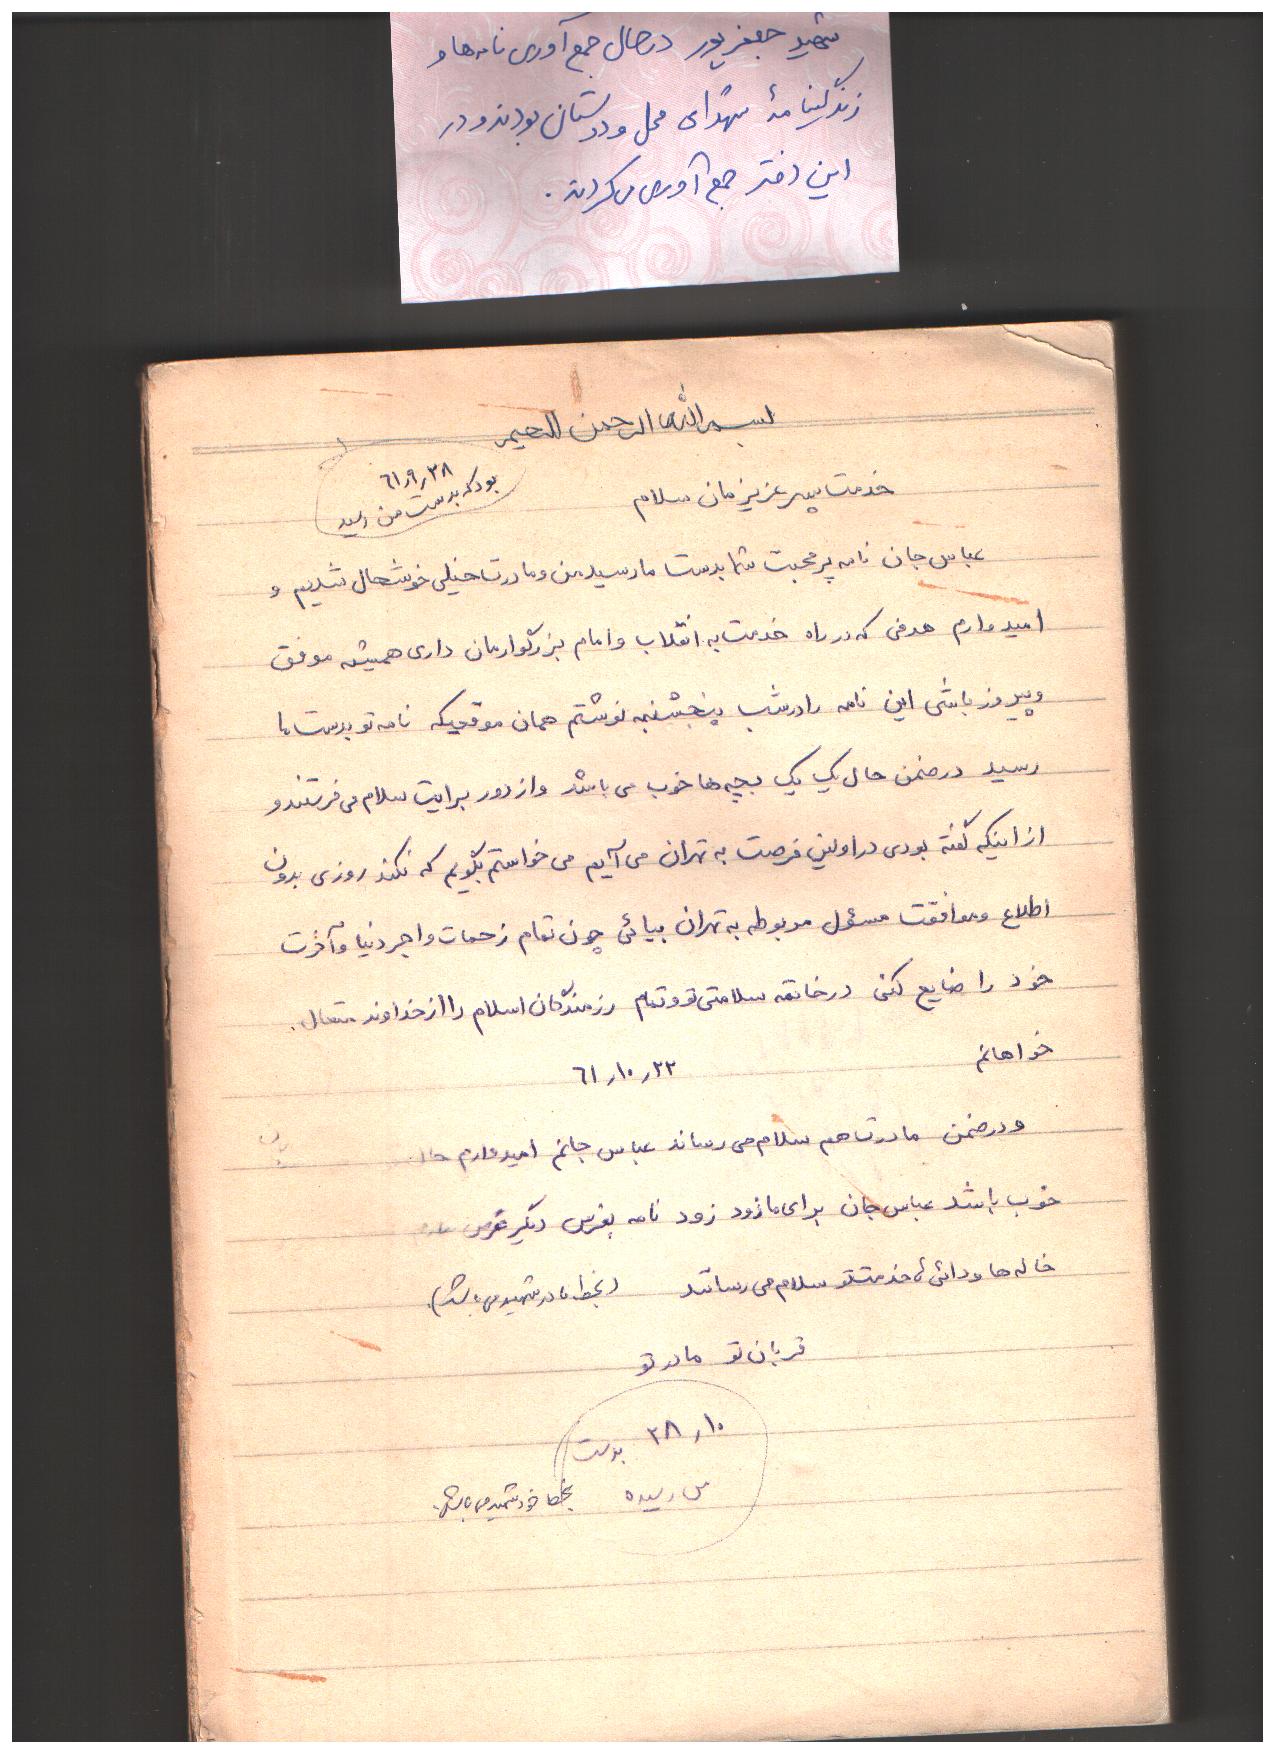 شهید جعفرپور درحال جمع آوری نامه‌ها و
زندگینامهٔ شهدای محل و دوستان بودند و در
این دفتر جمع آوری می‌کردند.
بسم الله الرحمن الرحیم
۶۱٫۹٫۲۸
بود که بدست من رسید
خدمت پسر عزیزمان سلام
عباس جان نامه پر محبت شما بدست ما رسید من و مادرت خیلی خوشحال شدیم و
امیدوارم هدفی که در راه خدمت به انقلاب و امام بزرگوارمان داری همیشه موفق
و پیروز باشی این نامه را در شب پنجشنبه نوشتم همان موقعیکه نامه تو بدست ما
رسید در ضمن حال یک یک بچه‌ها خوب می باشد و از دور برایت سلام می فرستند و
از اینکه گفته بودی در اولین فرصت به تهران می آیم می خواستم بگویم که نکند روزی بدون
اطلاع و موافقت مسئول مربوطه به تهران بیائی چون تمام زحمات و اجر دنیا و آخرت
خود را ضایع کنی در خاتمه سلامتی تو و تمام رزمندگان اسلام را از خداوند متعال.
خواهانم ۶۱٫۱۰٫۲۲
و در ضمن مادرت هم سلام می رساند عباس جانم امیدوارم
خوب باشد عباس جان برای ما زود زود نامه بفرس دیگر
خاله ها و دائی ها خدمتتو سلام می رسانند (بخط مادر شهید می باشد).
قربان تو مادر تو
۲۸٫۱۰ بدست
من رسیده بخط خود شهید می باشد.